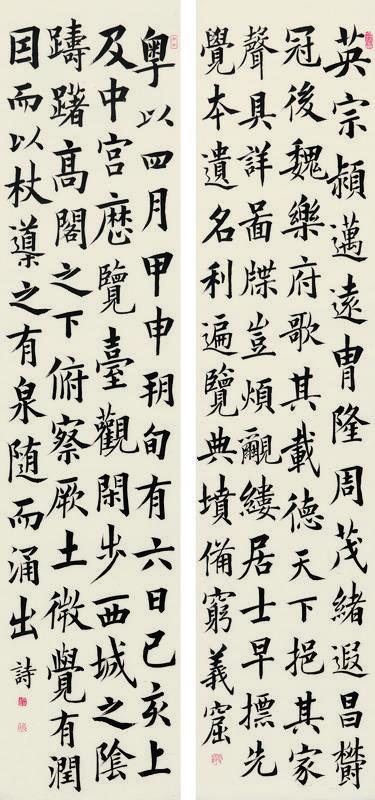 英宗穎邁遠冑隆周茂緒遐昌欝
冠後魏樂府歌其載德天下挹其家
聲具詳啚牒豈煩覼縷居士早摽先
覺本遺名利遍覽典墳備窮義窟
粵以四月甲申朔旬有六日己亥上
及中宮歷覽臺觀閑步西城之陰
躊躇高閣之下俯察厥土微覺有潤
因而以杖導之有泉隨而涌出 詩